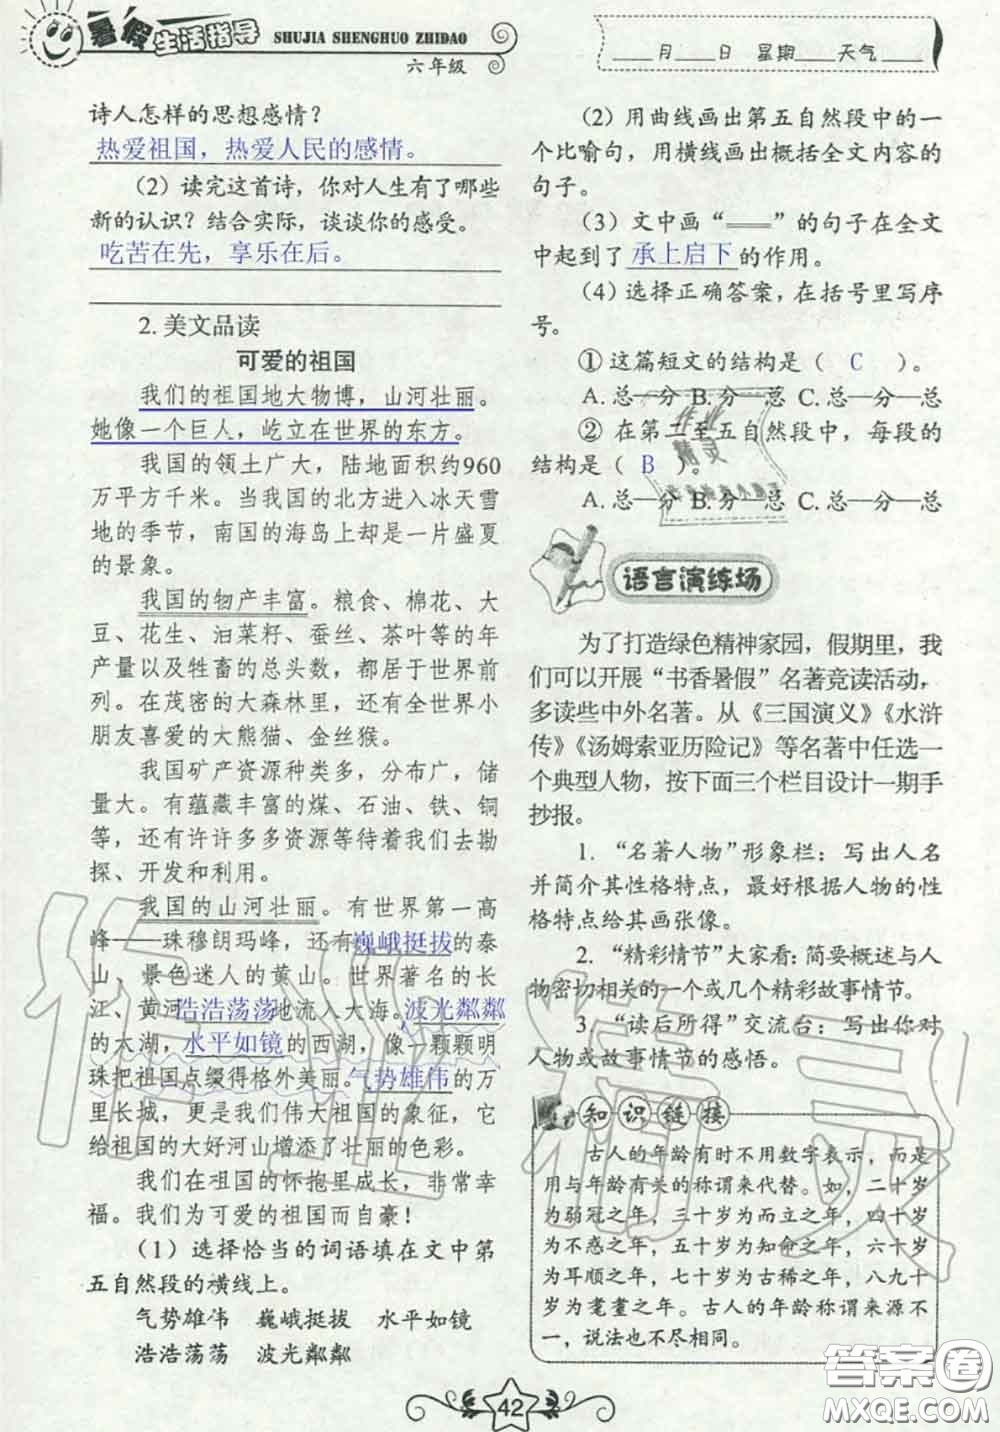 暑假生活指导
SHUJIA SHENGHUO ZHIDAO
六年级
___月___日 星期___天气___
诗人怎样的思想感情？
热爱祖国，热爱人民的感情。
（2）读完这首诗，你对人生有了哪些
新的认识？结合实际，谈谈你的感受。
吃苦在先，享乐在后。
2. 美文品读
可爱的祖国
我们的祖国地大物博，山河壮丽。
她像一个巨人，屹立在世界的东方。
我国的领土广大，陆地面积约960
万平方千米。当我国的北方进入冰天雪
地的季节，南国的海岛上却是一片盛夏
的景象。
我国的物产丰富。粮食、棉花、大
豆、花生、油菜籽、蚕丝、茶叶等的年
产量以及牲畜的总头数，都居于世界前
列。在茂密的大森林里，还有全世界小
朋友喜爱的大熊猫、金丝猴。
我国矿产资源种类多，分布广，储
量大。有蕴藏丰富的煤、石油、铁、铜
等，还有许许多多资源等待着我们去勘
探、开发和利用。
我国的山河壮丽。有世界第一高
峰——珠穆朗玛峰，还有巍峨挺拔的泰
山、景色迷人的黄山。世界著名的长
江、黄河浩浩荡荡地流入大海。波光粼粼
的太湖，水平如镜的西湖，像一颗颗明
珠把祖国点缀得格外美丽。气势雄伟的万
里长城，更是我们伟大祖国的象征，它
给祖国的大好河山增添了壮丽的色彩。
我们在祖国的怀抱里成长，非常幸
福。我们为可爱的祖国而自豪！
（1）选择恰当的词语填在文中第
五自然段的横线上。
气势雄伟 巍峨挺拔 水平如镜
浩浩荡荡 波光粼粼
（2）用曲线画出第五自然段中的一
个比喻句，用横线画出概括全文内容的
句子。
（3）文中画“══”的句子在全文
中起到了承上启下的作用。
（4）选择正确答案，在括号里写序
号。
①这篇短文的结构是（ C ）。
A. 总—分 B. 分—总 C. 总—分—总
②在第二至五自然段中，每段的
结构是（ B ）。
A. 总—分 B. 分—总 C. 总—分—总
语言演练场
为了打造绿色精神家园，假期里，我
们可以开展“书香暑假”名著竞读活动，
多读些中外名著。从《三国演义》《水浒
传》《汤姆索亚历险记》等名著中任选一
个典型人物，按下面三个栏目设计一期手
抄报。
1. “名著人物”形象栏：写出人名
并简介其性格特点，最好根据人物的性
格特点给其画张像。
2. “精彩情节”大家看：简要概述与人
物密切相关的一个或几个精彩故事情节。
3. “读后所得”交流台：写出你对
人物或故事情节的感悟。
知识链接
古人的年龄有时不用数字表示，而是
用与年龄有关的称谓来代替。如，二十岁
为弱冠之年，三十岁为而立之年，四十岁
为不惑之年，五十岁为知命之年，六十岁
为耳顺之年，七十岁为古稀之年，八九十
岁为耄耋之年。古人的年龄称谓来源不
一，说法也不尽相同。
42
作业精灵
答案圈
MXQE.COM